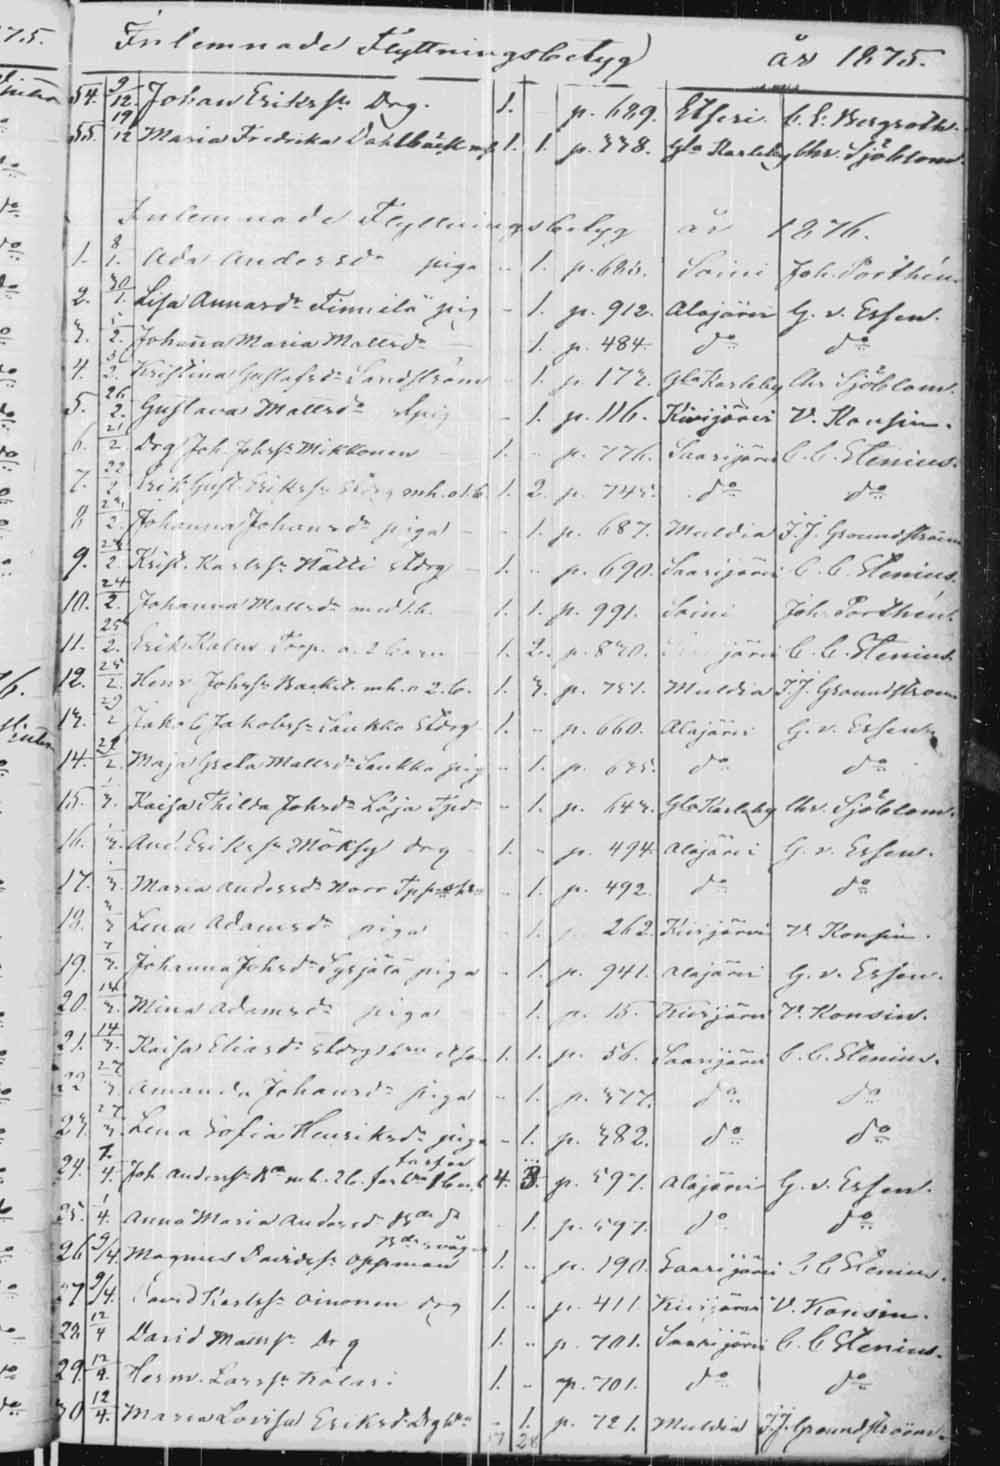 Inlemnade Flyttningsbetyg år 1875.
54. 9/12. Johan Erikss. Drg. 1. p. 689. Etseri. C. E. Bergroth.
55. 19/12 Maria Fredrika Dahlbäck 1. 1. p. 338. Gla Karleby Chr. Sjöblom.
Inlemnade Flyttningsbetyg år 1876.
1. 8/1. Ada Andersdr piga - 1. p. Soini Joh. Porthén.
2. 30/1. Lisa Annasdr Finnilä pig - 1. p. 912. Alajärvi G. v. Essen.
3. 2. Johanna Maria Mattsdr 1. p. 484. do do
4. 2. Kristina Gustafsdr Sandström - 1. p. 173. Gla Karleby Chr Sjöblom.
5. 26/2. Gustava Mattsdr - 1. p. 116. Kivijärvi V. Konsin.
6. 21/2 Drg Joh. Johss. Mikkonen 1. - p. 776. Saarijärvi C. C. Elenius.
7. 22/2 Erik Gust. Erikss. mh. o1b. 1. 2. p. 745. do do
8. 2. Johanna Johansdr piga - - 1. p. 687. Multia J. J. Groundström
9. 2. Krist. Karlss. Hätti Drg - 1. - p. 690. Saarijärvi C. C. Elenius.
10. 24/2. Johanna Mattsdr med 1 b. 1. 1. p. 991. Soini Joh. Porthén.
11. 25/2. Erik Kalm Torp. o. 2 barn - 1. 2. p. 830. järvi C. C. Elenius.
12. 25/2. Henr Johss. Backst. mh. o 2. b. 1. 3. p. 751. Multia J. J. Groundström
13. 29/2 Jakob Jakobss. Saukko Drg 1. - p. 660. Alajärvi G. v. Essen.
14. 29/2. Maja Greta Mattsdr Saukko pig - 1. p. 635. do do
15. 1/3. Kaisa Thilda Johsdr Löja - 1. p. 643. Gla Karleby Chr. Sjöblom.
16. 3. And. Erikss. Möksy drg 1. - p. 494. Alajärvi G. v. Essen.
17. 3. Maria Andersdr Norr - 1. p. 492. do do
18. 3/3 Lena Adamsdr piga - 1. p. 262. Kivijärvi V. Konsin.
19. 7/3. Johanna Johsdr Syrjälä piga - 1. p. 941. Alajärvi G. v. Essen.
20. 14/3. Mina Adamsdr piga - 1. p. 15. Kivijärvi V. Konsin.
21. 14/3. Kaisa Eliasdr 1. 1. p. 56. Saarijärvi C. C. Elenius.
22 27/3 Amanda Johansdr piga - 1. p. 377. do do
23. 27/3. Lena Sofia Henriksdr piga - 1. p. 382. do do
24. 1/4. Joh. Anderss. mh. 2b. 4. 3. p. 597. Alajärvi G. v. Essen.
25. 1/4. Anna Maria Andersd - 1. p. 597. do do
26 9/4. Magnus Davidss. Oppman 1. - p. 190. Saarijärvi C C Elenius.
27 9/4. David Karlss. Oinonen drg 1. - p. 411. Kivijärvi V. Konsin.
28. 12/4 David Mattss. Drg 1. - p. 701. Saarijärvi C. C. Elenius.
29. 12/4. Herm. Larss. Kolari 1. - p. 701. do do
30 12/4. Maria Lovisa Eriksd - 1. p. 721. Multia J. J. Groundström.
17 28